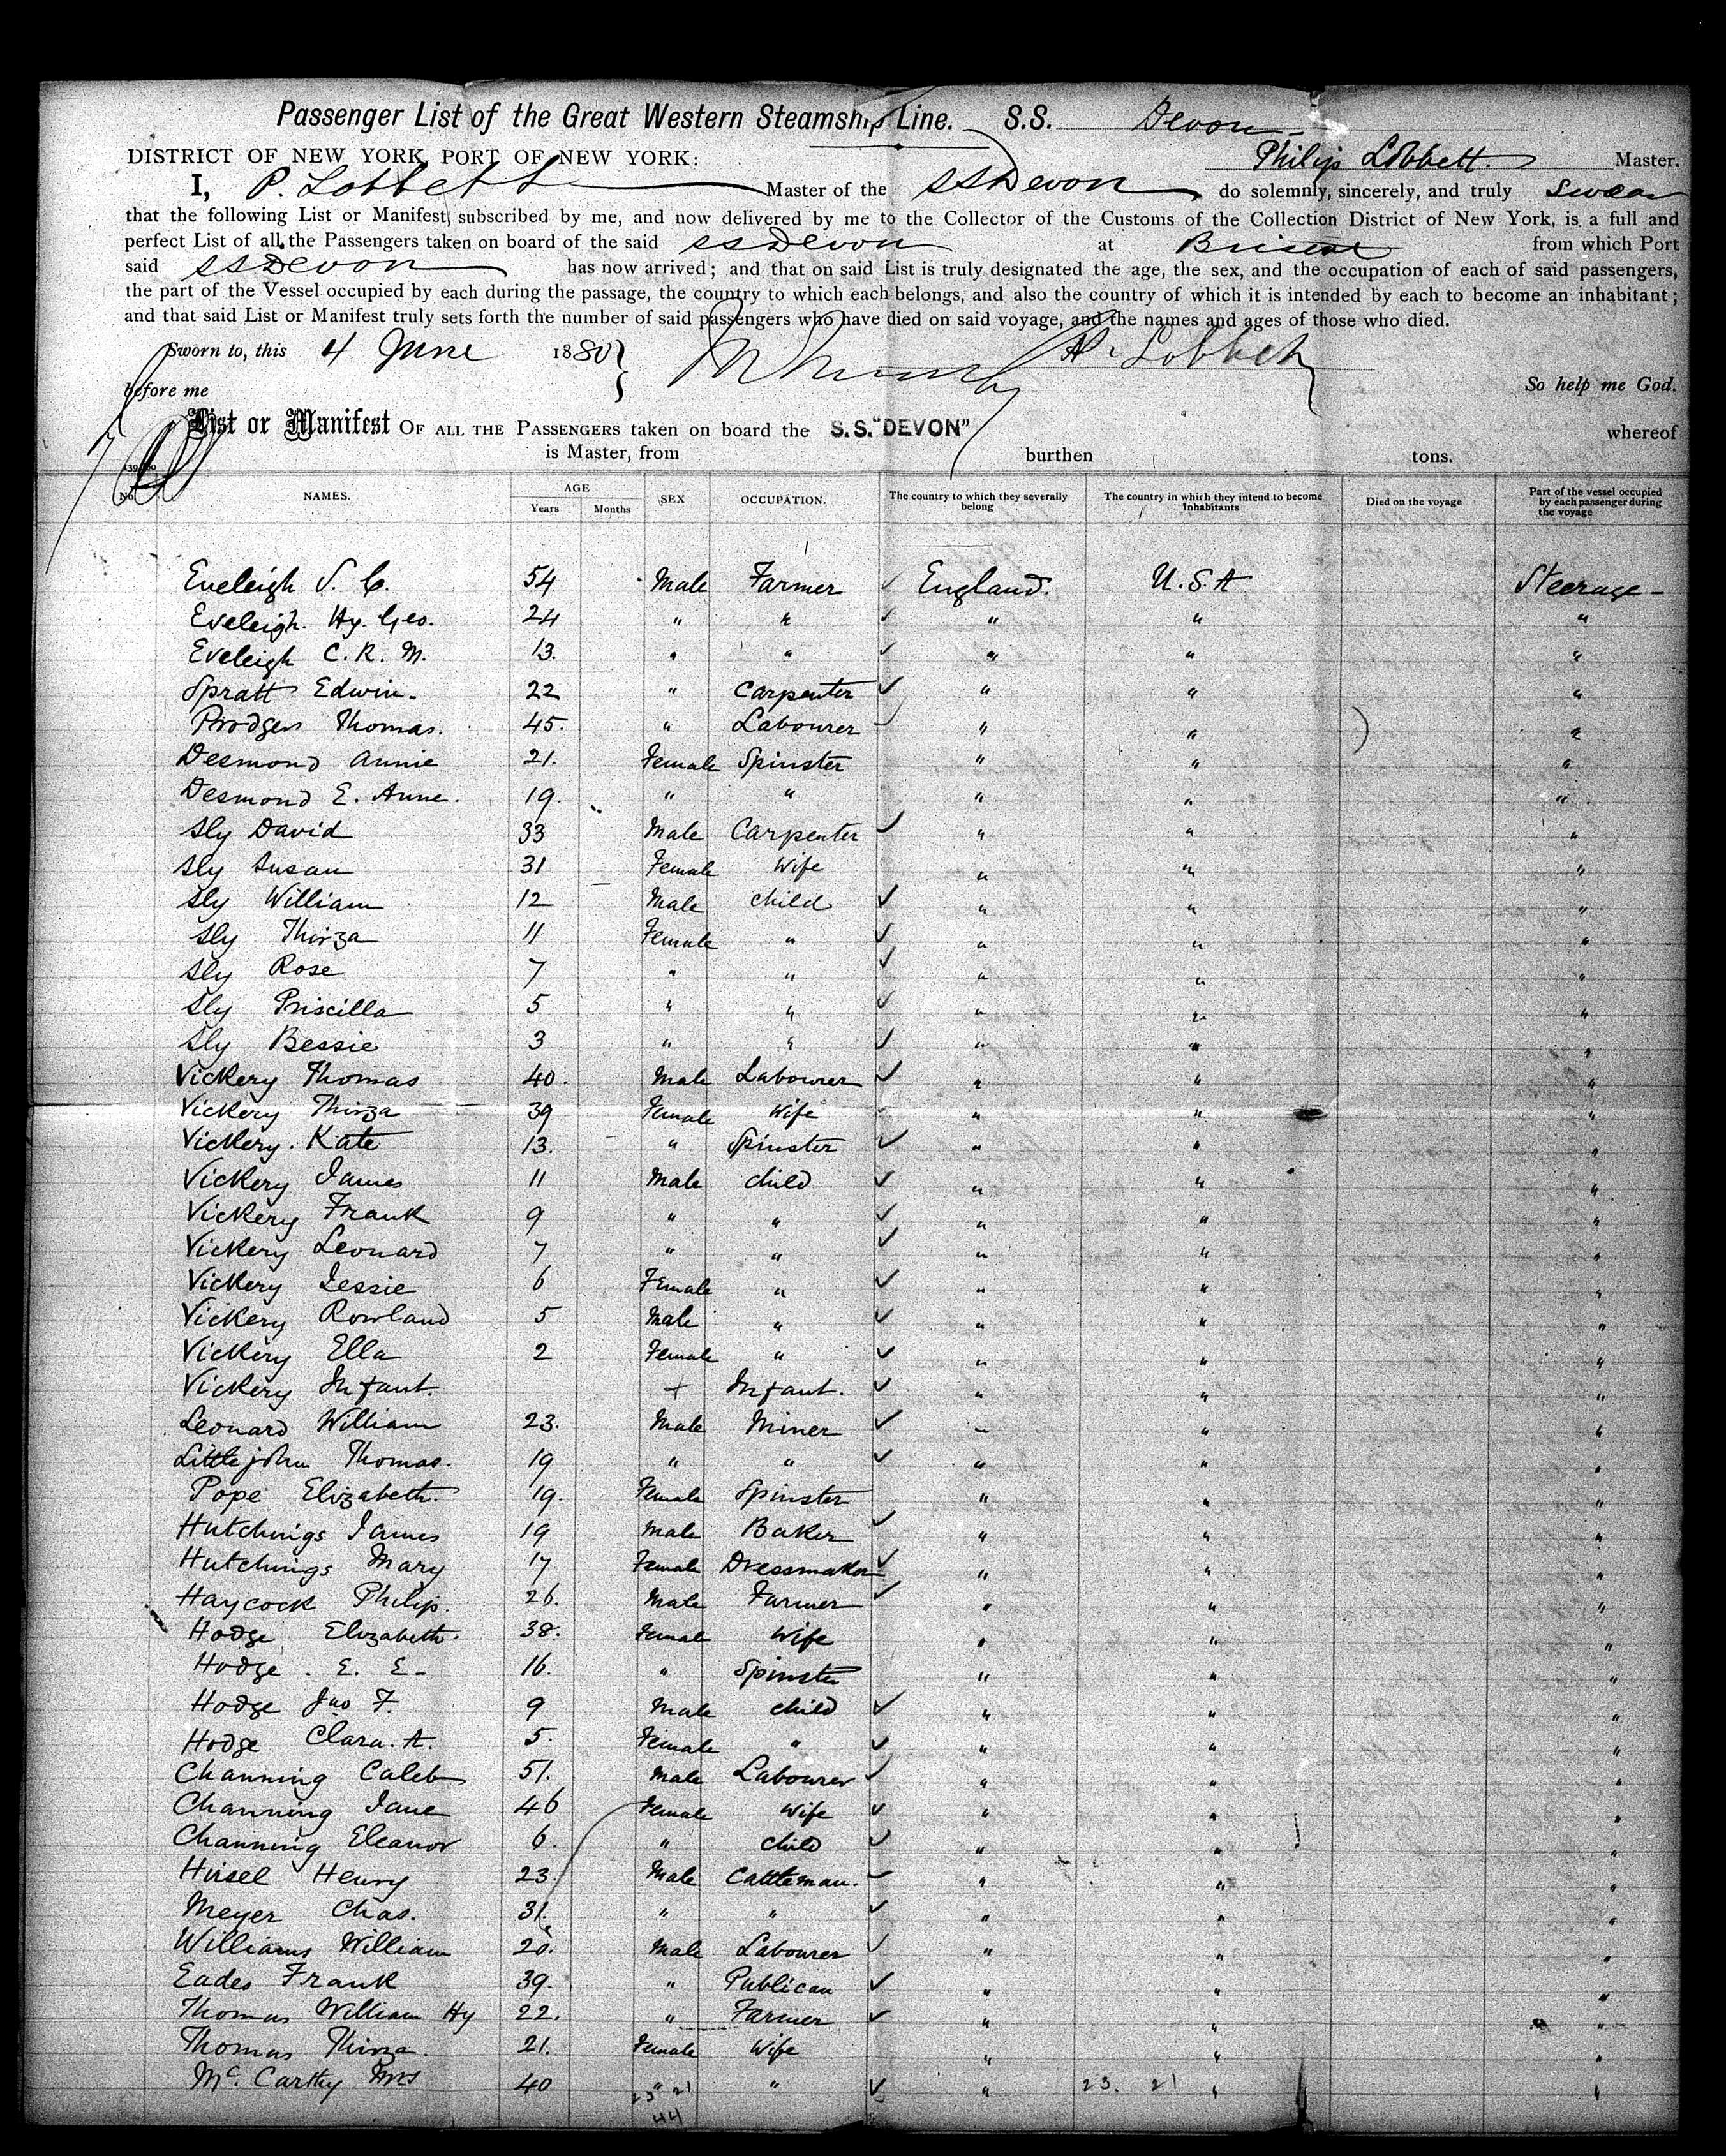 Passenger List of the Great Western Steamship Line. S.S. Devon
DISTRICT OF NEW YORK, PORT OF NEW YORK: Philip Lobbett Master.
I, P. Lobbett Master of the SS Devon do solemnly, sincerely, and truly swear
that the following List or Manifest, subscribed by me, and now delivered by me to the Collector of the Customs of the Collection District of New York, is a full and
perfect List of all the Passengers taken on board of the said SS Devon at Bristol from which Port
said SS Devon has now arrived; and that on said List is truly designated the age, the sex, and the occupation of each of said passengers,
the part of the Vessel occupied by each during the passage, the country to which each belongs, and also the country of which it is intended by each to become an inhabitant;
and that said List or Manifest truly sets forth the number of said passengers who have died on said voyage, and the names and ages of those who died.
Sworn to, this 4 June 1880 P. Lobbett
before me So help me God.
List or Manifest OF ALL THE PASSENGERS taken on board the S.S. "DEVON" whereof
is Master, from burthen tons.
No. NAMES. AGE Years Months SEX OCCUPATION. The country to which they severally belong The country in which they intend to become Inhabitants Died on the voyage Part of the vessel occupied by each passenger during the voyage
Eveleigh S. C. 54 Male Farmer England. U.S.A Steerage
Eveleigh. Hy. Geo. 24 " " " " "
Eveleigh C. R. M. 13. " " " " "
Spratt Edwin. 22 " Carpenter " " "
Prodgers Thomas. 45. " Labourer " " "
Desmond Annie 21. Female Spinster " " "
Desmond E. Anne. 19. " " " " "
Sly David 33 Male Carpenter " " "
Sly Susan 31 Female Wife " " "
Sly William 12 Male child " " "
Sly Thirza 11 Female " " " "
Sly Rose 7 " " " " "
Sly Priscilla 5 " " " " "
Sly Bessie 3 " " " " "
Vickery Thomas 40. Male Labourer " " "
Vickery Thirza 39 Female Wife " " "
Vickery. Kate 13. " Spinster " " "
Vickery James 11 Male child " " "
Vickery Frank 9 " " " " "
Vickery Leonard 7 " " " " "
Vickery Jessie 6 Female " " " "
Vickery Rowland 5 Male " " " "
Vickery Ella 2 Female " " " "
Vickery Infant + Infant. " " "
Leonard William 23. Male Miner " " "
Littlejohn Thomas. 19 " " " " "
Pope Elizabeth. 19. Female Spinster " " "
Hutchings James 19 Male Baker " " "
Hutchings Mary 17 Female Dressmaker " " "
Haycock Philip. 26. Male Farmer " " "
Hodge Elizabeth. 38. Female Wife " " "
Hodge. E. E. 16. " Spinster " " "
Hodge Jno F. 9 Male child " " "
Hodge Clara. A. 5. Female " " " "
Channing Caleb 51. Male Labourer " " "
Channing Jane 46 Female Wife " " "
Channing Eleanor 6. " child " " "
Hirsel Henry 23. Male Cattleman. " " "
Meyer Chas. 31. " " " " "
Williams William 20. Male Labourer " " "
Eades Frank 39. " Publican " " "
Thomas William Hy 22. " Farmer " " "
Thomas Thirza. 21. Female Wife " " "
McCarthy Mrs 40 " " " " "
23 21 23. 21
44